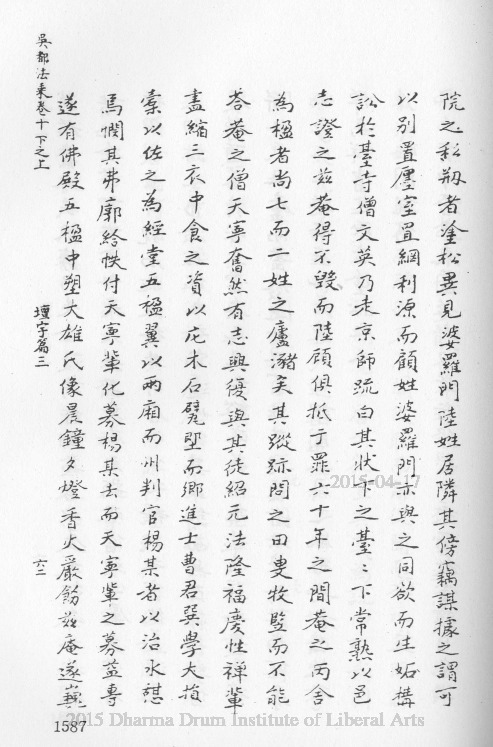 院之私剏者塗松異見婆羅門陸姓居隣其傍竊謀據之謂可
以別置廛室罝網利源而顧姓婆羅門亦與之同欲而生妬搆
訟於臺寺僧文英乃走京師疏白其狀下之臺〻下常熟以邑
志證之茲菴得不毀而陸顧俱抵于罪六十年之間菴之丙舍
為楹者尚七而二姓之廬瀦矣其蹤跡問之田叟牧豎而不能
答菴之僧天寧奮然有志興復與其徒紹元法隆福慶性禪輩
盡縮三衣中食之資以庀木石甓墍而鄉進士曹君巽學大捐
橐以佐之為經堂五楹翼以兩廂而州判官楊某者以治水憇
焉憫其弗廓給帙付天寧輩化募楊某去而天寧輩之募益專
遂有佛殿五楹中塑大雄氏像晨鐘夕燈香火嚴飭茲庵遂巍
吳都法乘卷十下之上
壇宇篇三
六二
1587
2015-04-17
2015 Dharma Drum Institute of Liberal Arts